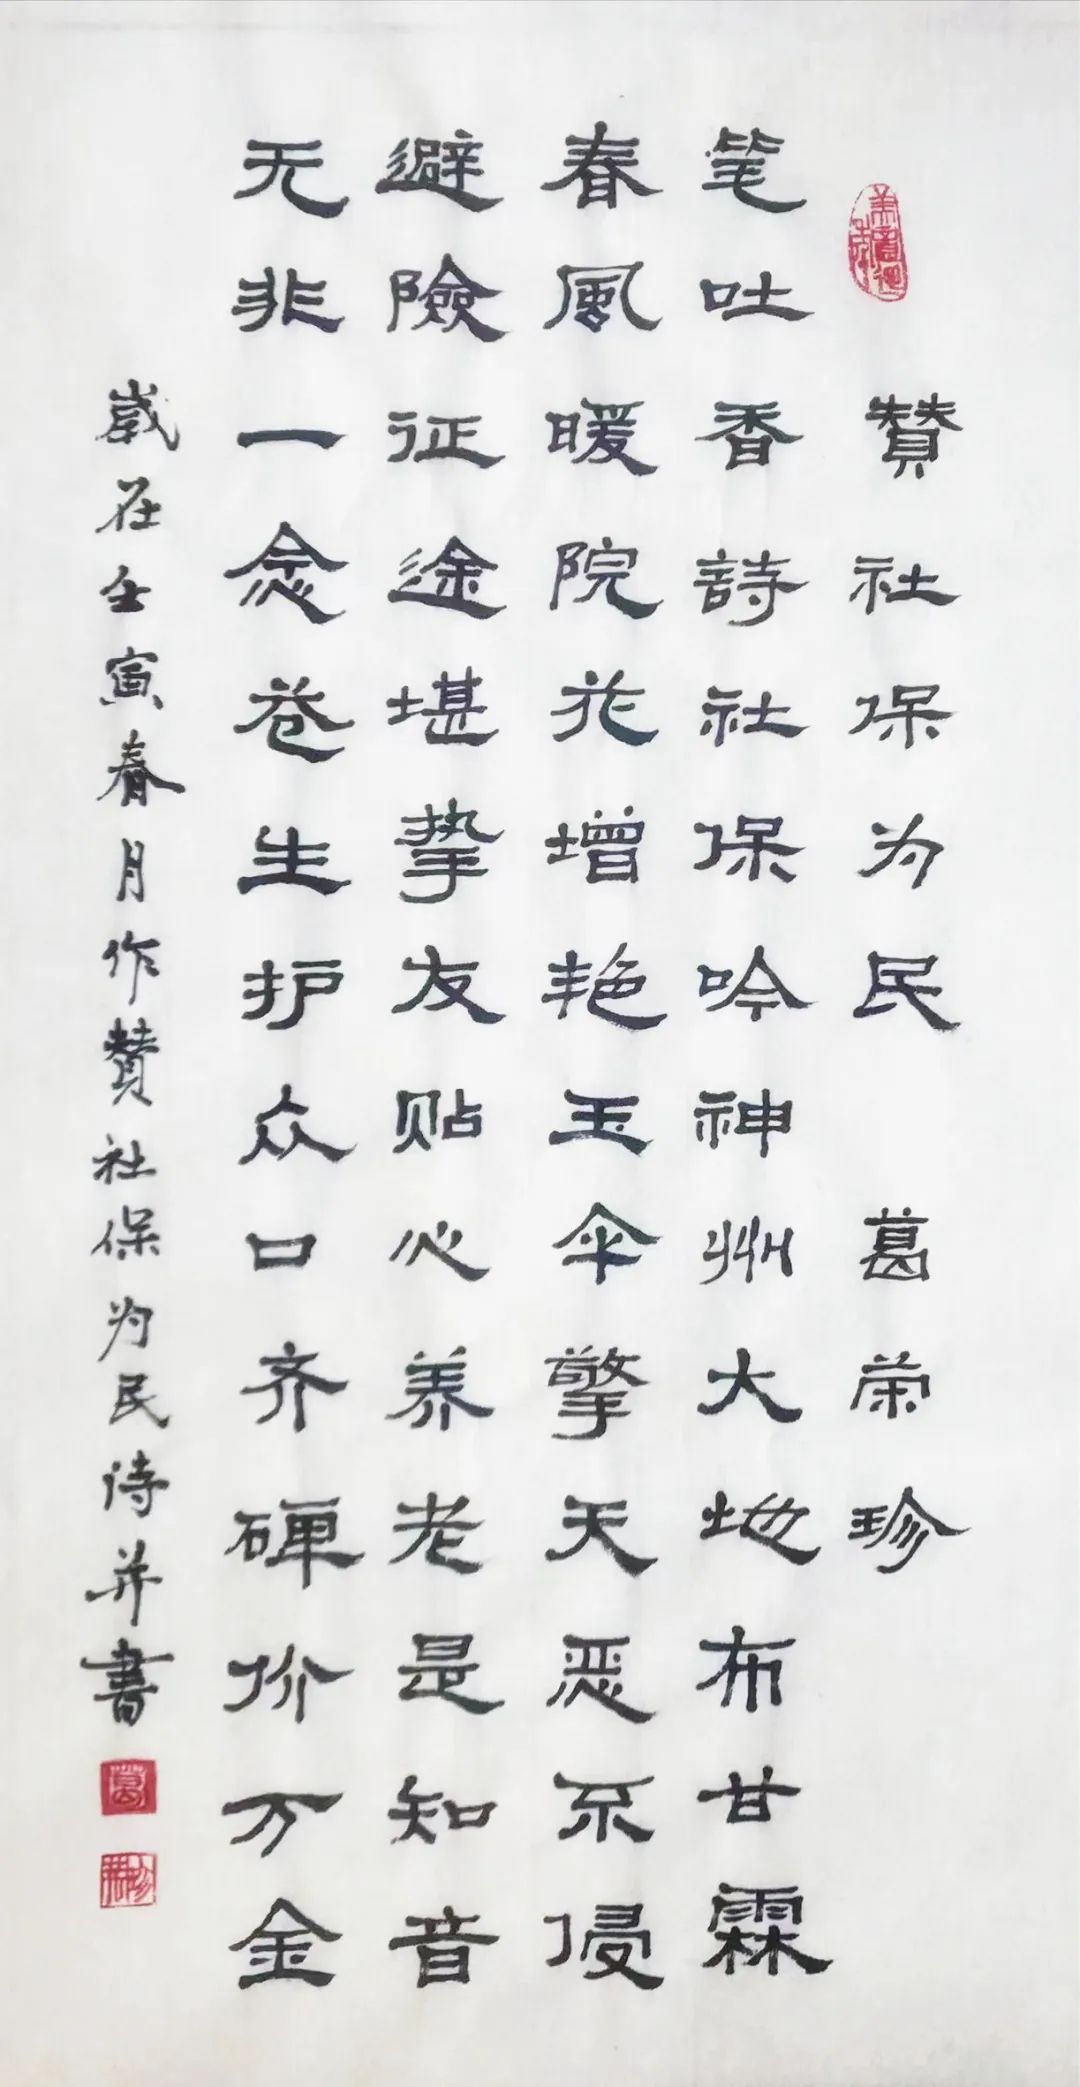 赞社保为民 葛荣珍
笔吐香詩社保吟神州大地布甘霖
春風暖院花增艳玉伞擎天恶不侵
避險征途堪挚友贴心养老是知音
无非一念苍生护众口齐碑价万金
歲在壬寅春月作赞社保为民诗并書
葛